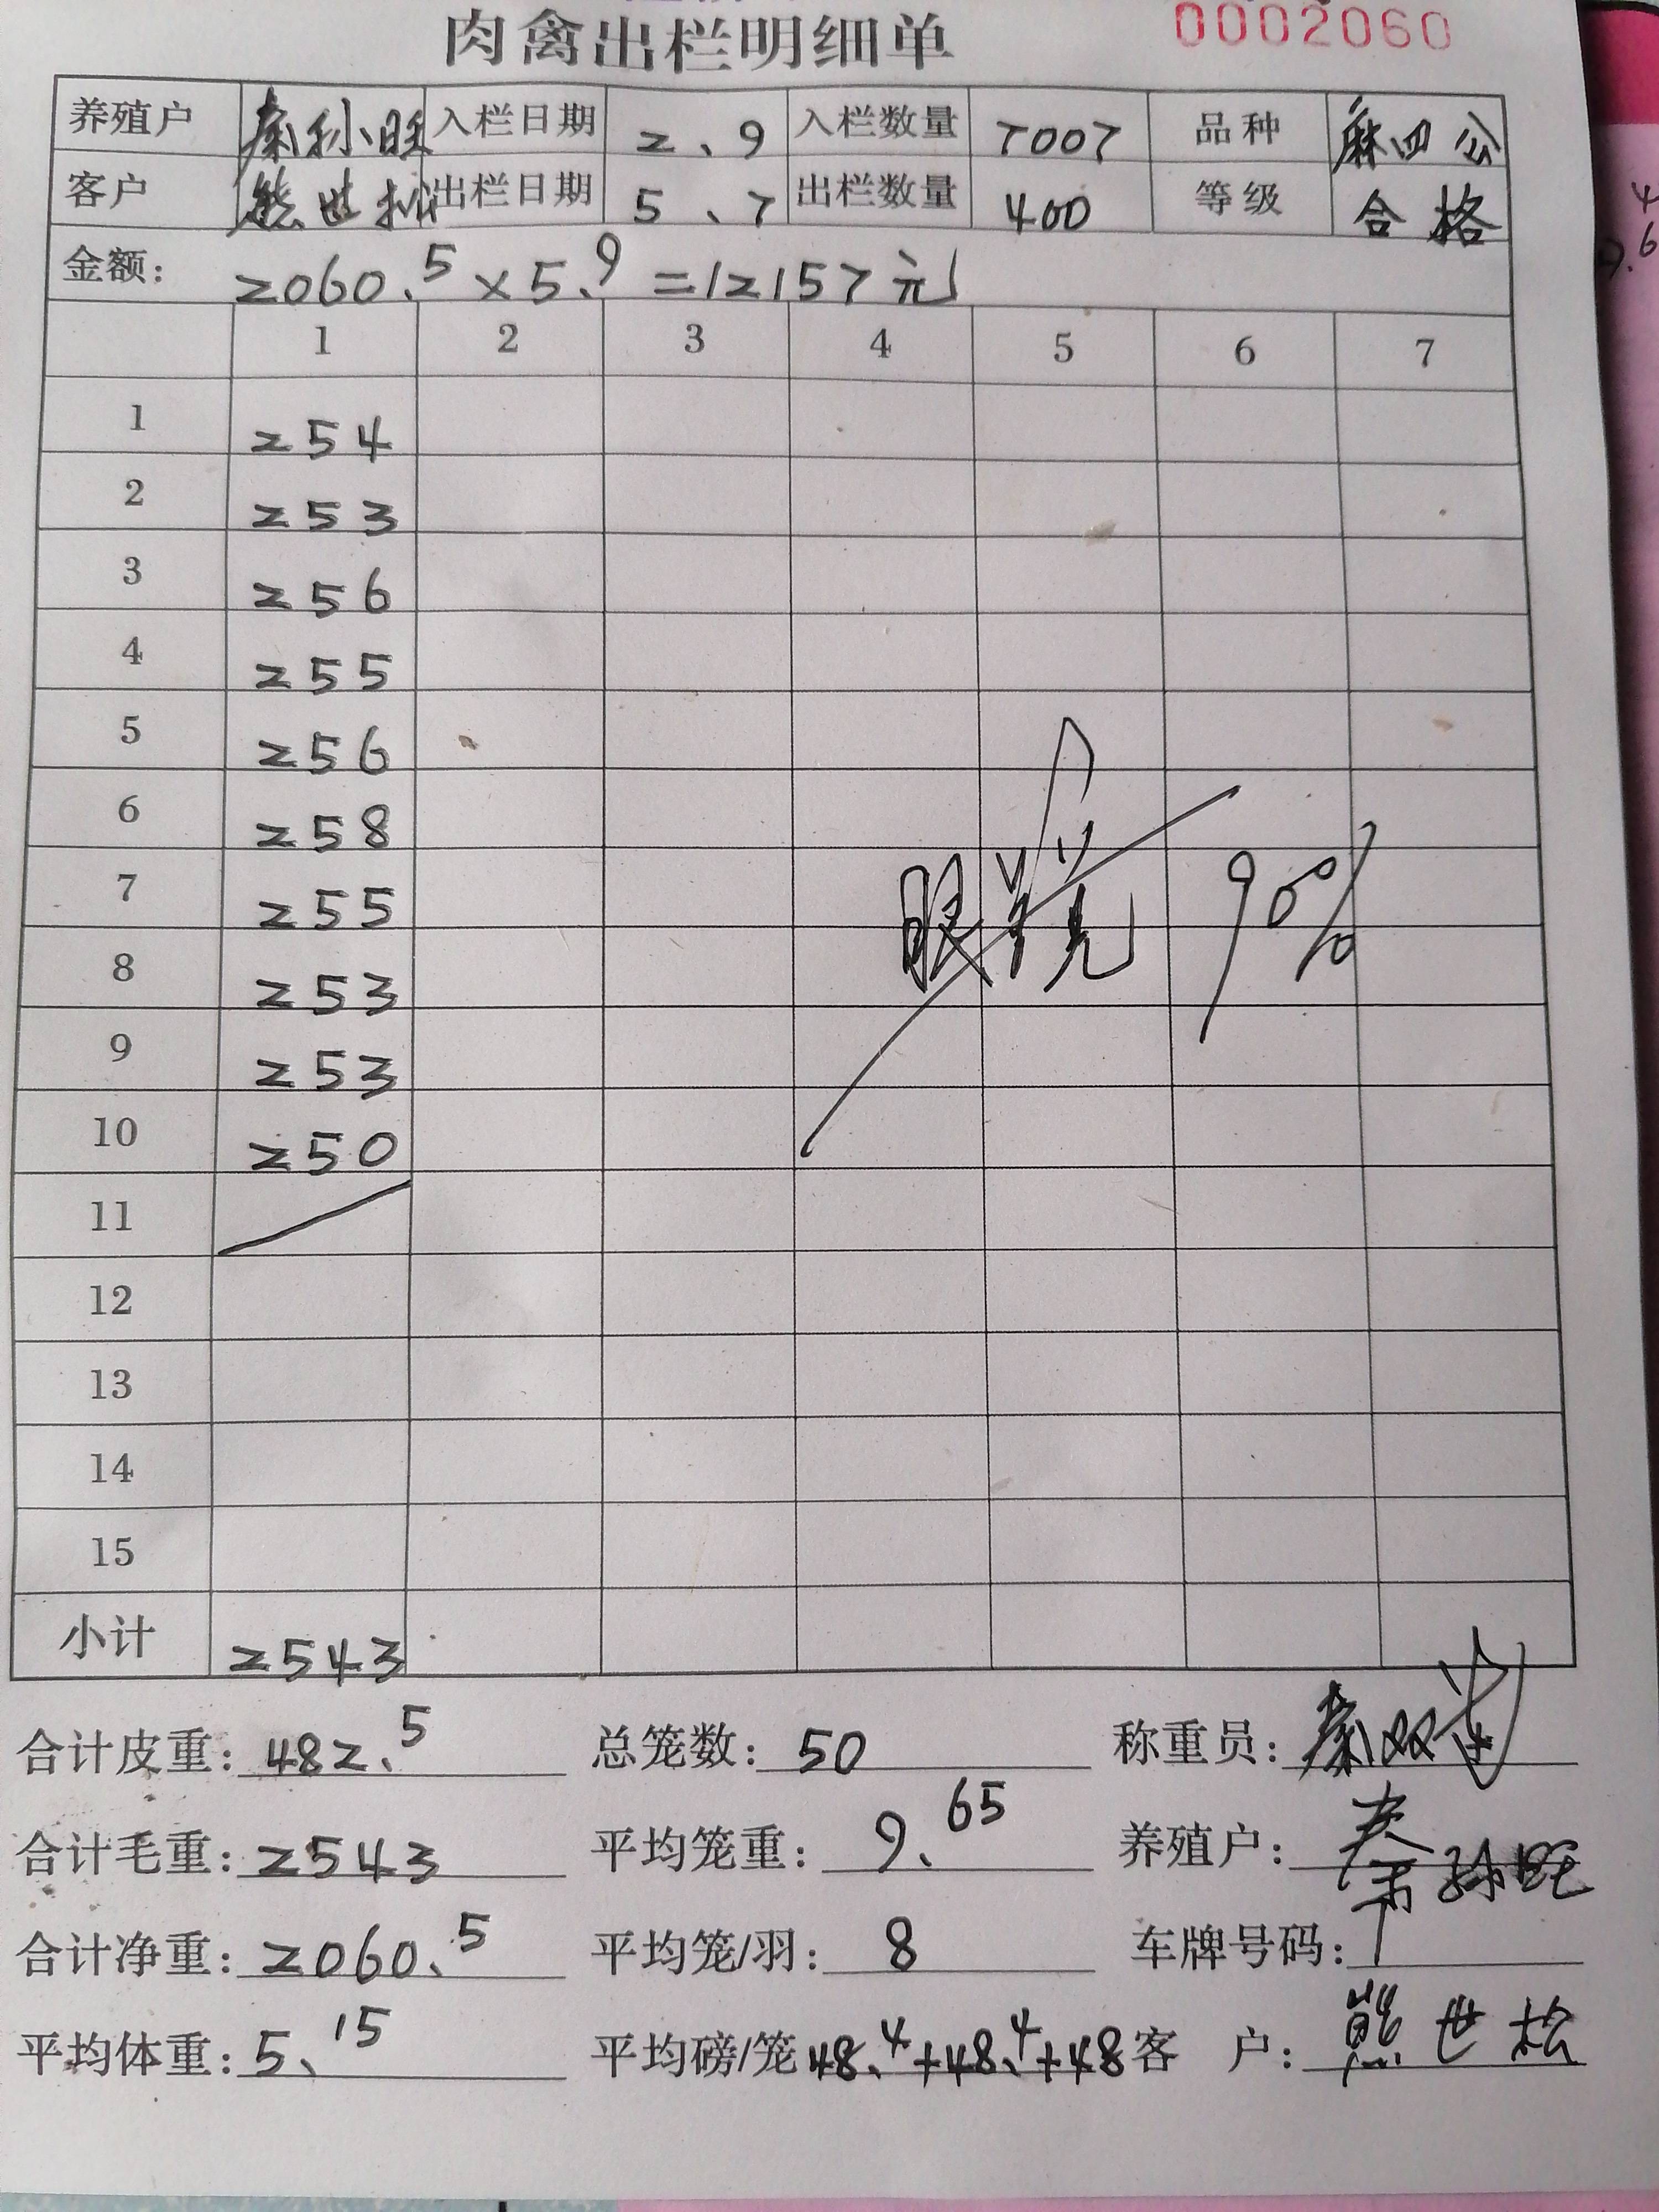 肉禽出栏明细单 0002060
养殖户 秦孙旺 入栏日期 2、9 入栏数量 7007 品种 麻四公
客户 熊世松 出栏日期 5、7 出栏数量 400 等级 合格
金额: 2060.5×5.9=12157元
1 2 3 4 5 6 7
1 254
2 253
3 256
4 255
5 256
6 258
7 255 眼镜 90%
8 253
9 253
10 250
11
12
13
14
15
小计 2543
合计皮重: 482.5 总笼数: 50 称重员: 秦双
合计毛重: 2543 平均笼重: 9.65 养殖户: 秦孙旺
合计净重: 2060.5 平均笼/羽: 8 车牌号码:
平均体重: 5.15 平均磅/笼 48.4+48.4+48 客 户: 熊世松